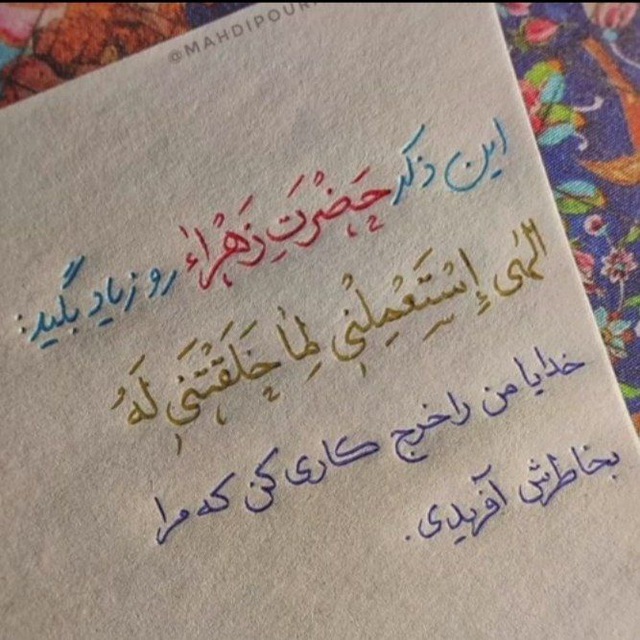 @MAHDIPOUR
این ذکر حَضْرَتِ زَهْراٰء رو زیاد بگید:
الٰهی إِسْتَعْمِلْنٖی لِمٰا خَلَقْتَنٖی لَهُ
خدایا من را خرج کاری کن که مرا
بخاطرش آفریدی.